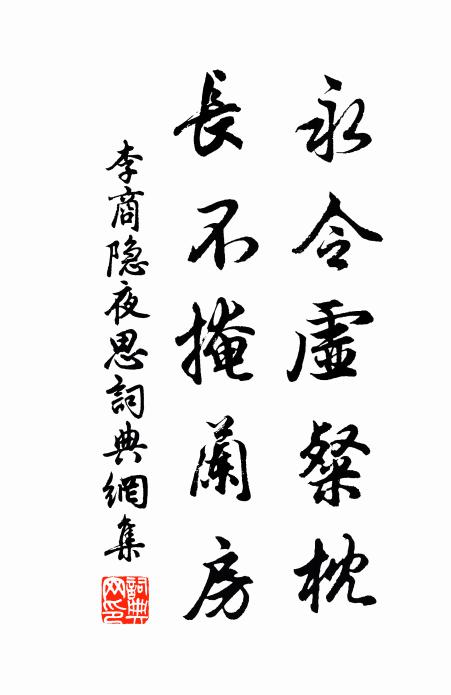 永令虛粲枕
長不掩蘭房
李商隐夜思詞典網集
詞典网印